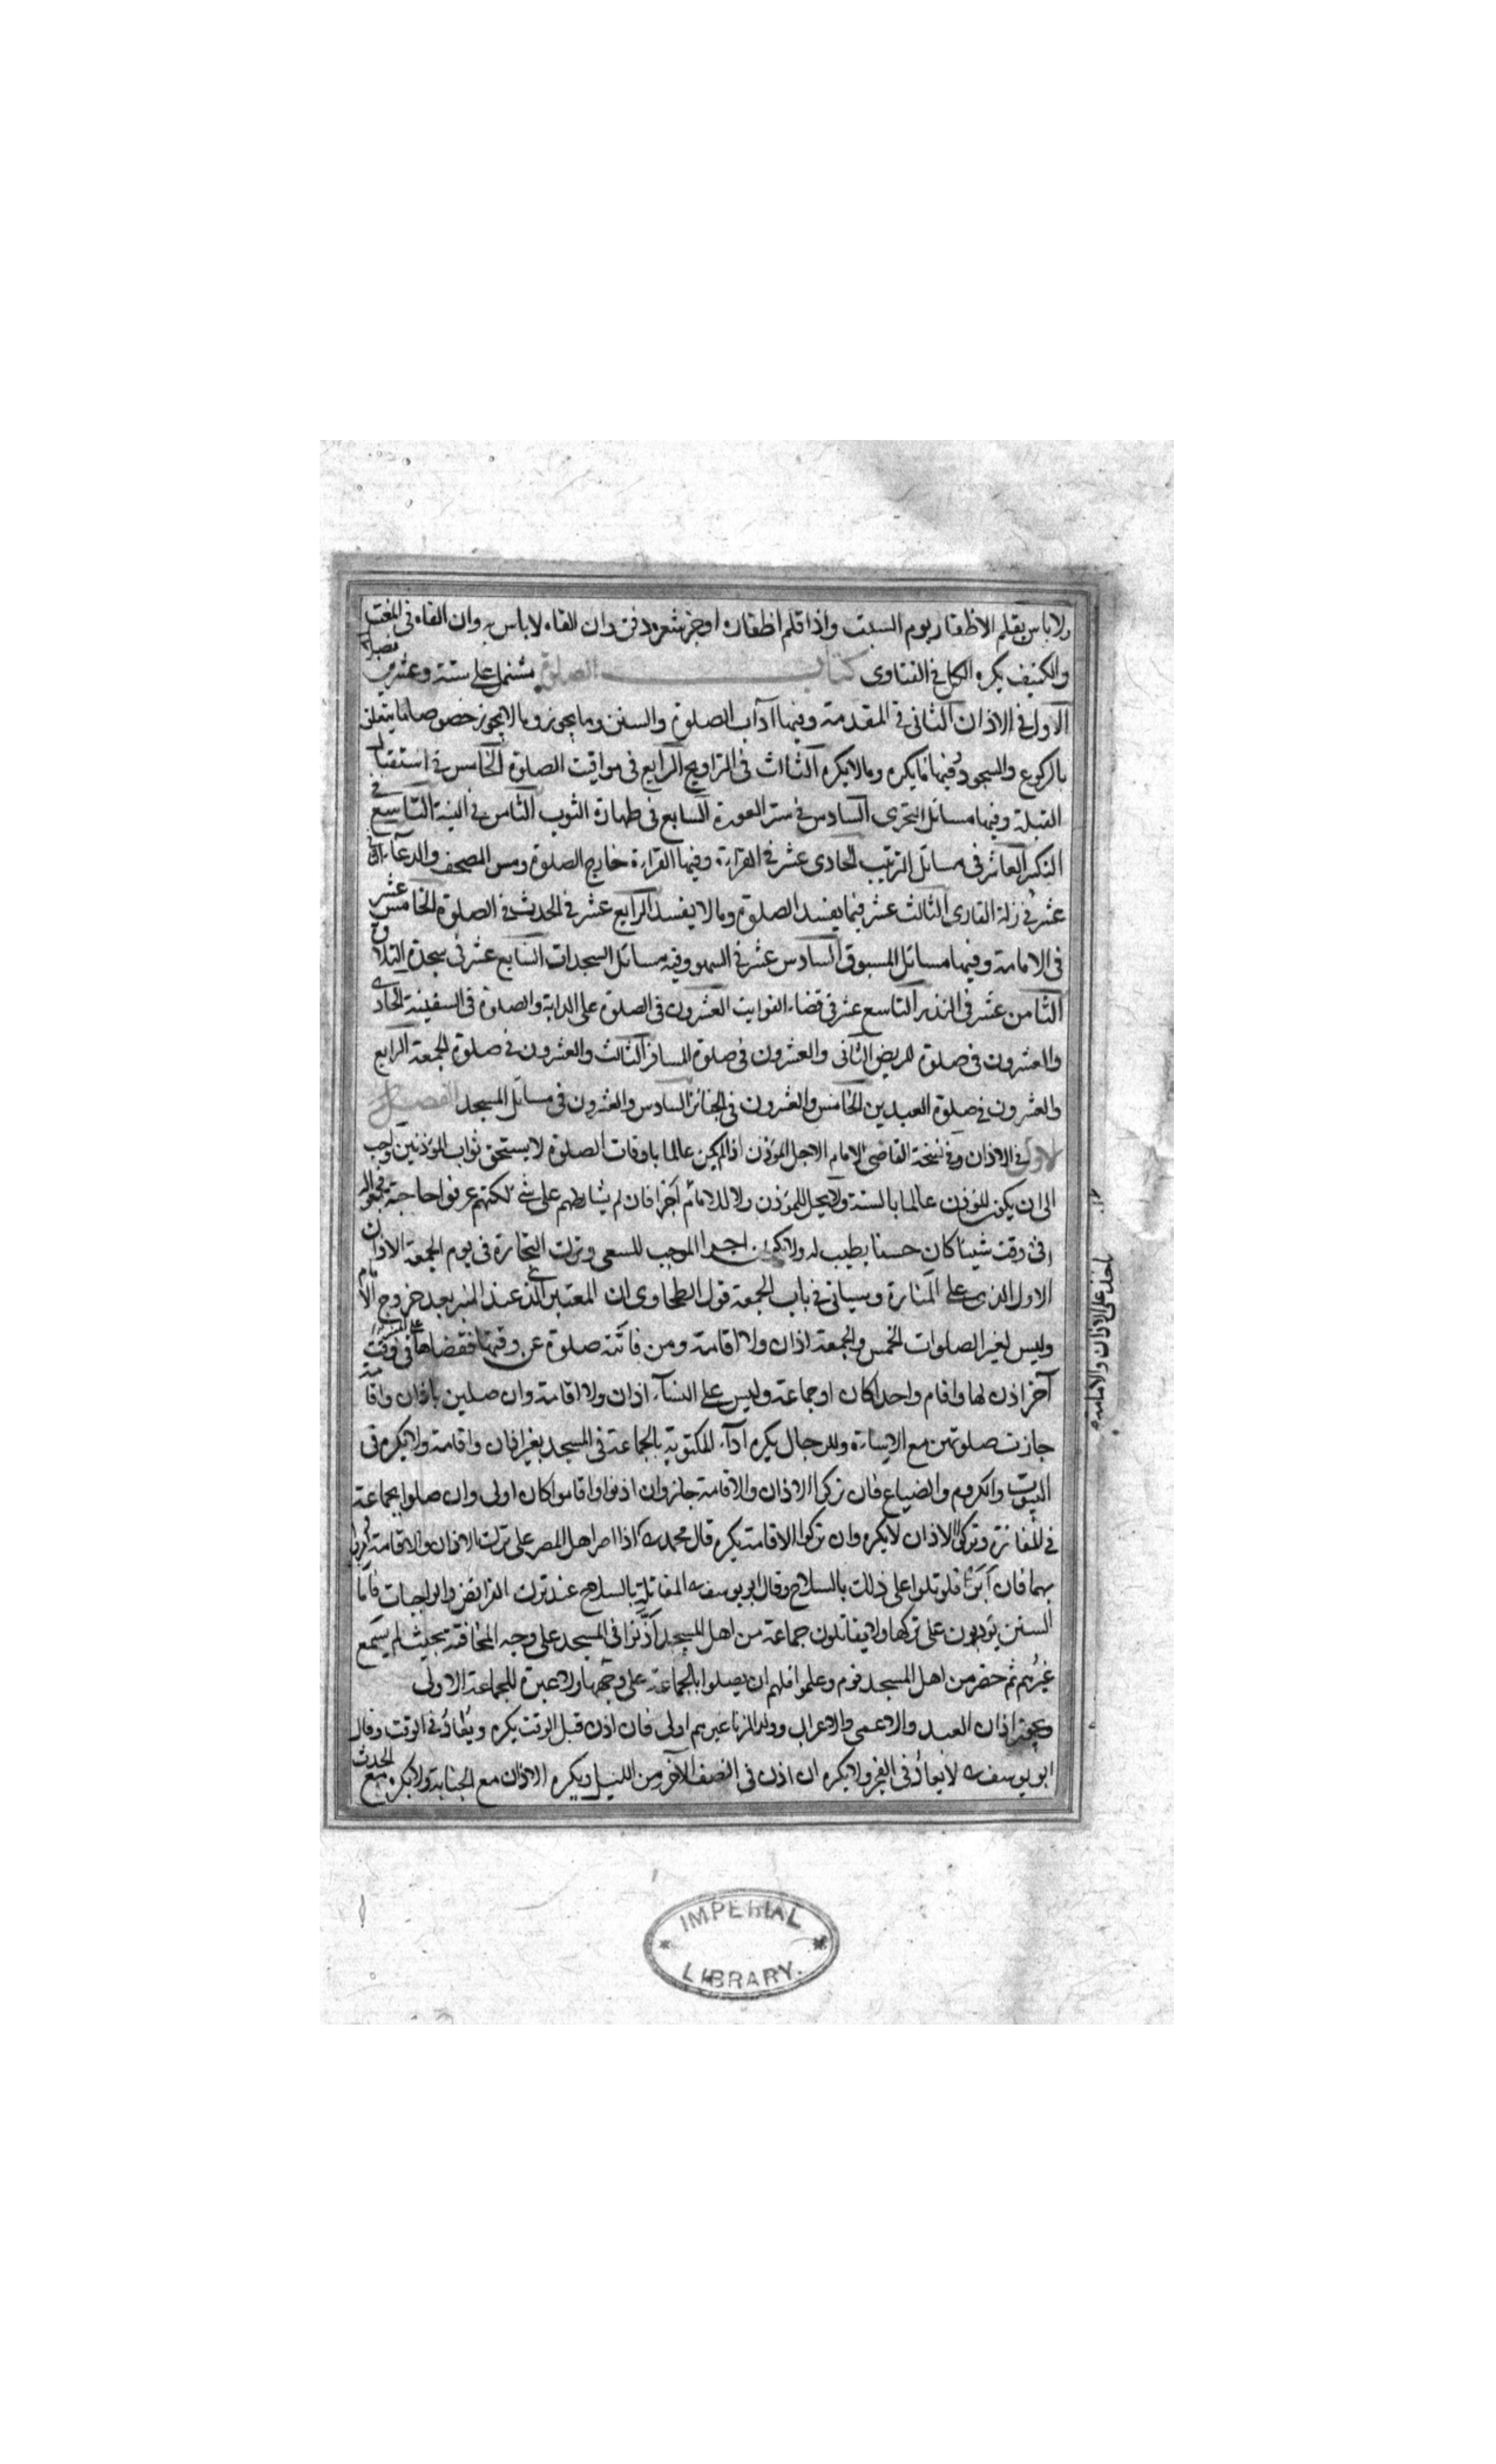 ولا باس بقلم الاظفار يوم السبت واذا قلم اظفاره او جز شعره دفن وان القاه لا باس به وان القاه فى المغتسل
والكنيف يكره الكل فى الفتاوى كتاب الصلوة مشتمل على ستة وعشرين فصلا
الاول فى الاذان الثانى فى المقدمة وفيها آداب الصلوة والسنن وما يجوز وما لا يجوز خصوصا ما يتعلق
بالركوع والسجود وفيها ما يكره وما لا يكره الثالث فى التراويح الرابع فى مواقيت الصلوة الخامس فى استقبال
القبلة وفيها مسائل التحرى السادس فى ستر العورة السابع فى طهارة الثوب الثامن فى النية التاسع فى
الذكر العاشر فى مسائل الترتيب الحادى عشر فى القراءة وفيها القراءة خارج الصلوة ومس المصحف والدعآء الثانى
عشر فى زلة القارى الثالث عشر فيما يفسد الصلوة وما لا يفسد الرابع عشر فى الحدث فى الصلوة الخامس عشر
فى الامامة وفيها مسائل المسبوق السادس عشر فى السهو وفيه مسائل السجدات السابع عشر فى سجدة التلاوة
الثامن عشر فى النذر التاسع عشر فى قضاء الفوايت العشرون فى الصلوة على الدابة والصلوة فى السفينة الحادى
والعشرون فى صلوة المريض الثانى والعشرون فى صلوة المسافر الثالث والعشرون فى صلوة الجمعة الرابع
والعشرون فى صلوة العيدين الخامس والعشرون فى الجنائز السادس والعشرون فى مسائل المسجد الفصل
الاول فى الاذان وفى نسخة القاضى الامام الاجل المؤذن اذا لم يكن عالما باوقات الصلوة لا يستحق ثواب المؤذنين
الى ان يكون المؤذن عالما بالسنة ولا يحل للمؤذن ولا للامام اجر فان لم يشارطهم على شئ لكنهم عرفوا حاجته فجمعوا له
فى وقت شيئا كان حسنا يطيب له ولا يكون اجرا الموجب للسعى وترك التجارة فى يوم الجمعة الاذان
الاول الذى على المنارة وسياتى فى باب الجمعة قول الطحاوى ان المعتبر الذى عند المنبر بعد خروج الامام
وليس لغير الصلوات الخمس والجمعة اذان ولا اقامة ومن فاتته صلوة عن وقتها فقضاها فى وقت
آخر اذن لها واقام واحدا كان او جماعة وليس على النسآء اذان ولا اقامة وان صلين باذان واقامة
جازت صلوتهن مع الاساءة وللرجال يكره ادآء المكتوبة بالجماعة فى المسجد بغير اذان واقامة ولا يكره فى
البيوت والكروم والضياع فان تركوا الاذان والاقامة جاز وان اذنوا واقاموا كان اولى وان صلوا بجماعة
فى المفازة وتركوا الاذان لا يكره وان تركوا الاقامة يكره قال محمد اذا اصر اهل المصر على ترك الاذان والاقامة امروا
بهما فان ابوا قوتلوا على ذلك بالسلاح وقال ابو يوسف المقاتلة بالسلاح عند ترك الفرائض والواجبات فاما
السنن يؤدبون على تركها ولا يقاتلون جماعة من اهل المسجد اذنوا فى المسجد على وجه المخافتة بحيث لم يسمع
غيرهم ثم حضر من اهل المسجد قوم وعلموا فلهم ان يصلوا بالجماعة على وجهها ولا عبرة للجماعة الاولى
ويجوز اذان العبد والاعمى والاعراب وولد الزنا غيرهم اولى فان اذن قبل الوقت يكره ويعاد فى الوقت وقال
ابو يوسف لا يعاد فى الفجر ولا يكره ان اذن فى النصف الآخر من الليل ويكره الاذان مع الجنابة ولا يكره مع الحدث
اخذ على الاذان والامامة
IMPERIAL
LIBRARY.